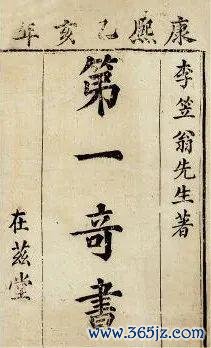 康熙乙亥年
李笠翁先生著
第一奇書
在茲堂
www.365jz.com